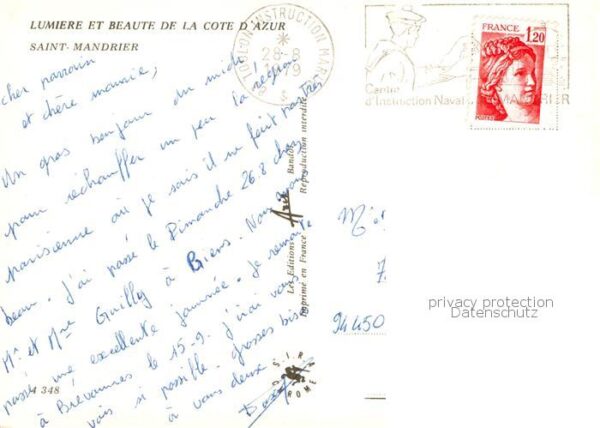 LUMIERE ET BEAUTE DE LA COTE D'AZUR
SAINT-MANDRIER
cher parrain
et chère marraine,
Un gros bonjour du midi
pour réchauffer un peu la région
parisienne où je sais il ne fait pas très
beau. J'ai passé le Dimanche 26.8 chez
Mr et Mme Guilly à Biens. Nous avons
passé une excellente journée. Je remonte
à Brévannes le 15-9. J'irai vous
voir si possible. grosses bis
à vous deux
4 348
Les Editions Azur Bandol
Imprimé en France Reproduction interdite
SIRA
ROME
TOULON INSTRUCTION MAR
28-8
Centre
d'Instruction Naval
MANDRIER
FRANCE
1,20
POSTES
94450
privacy protection
Datenschutz